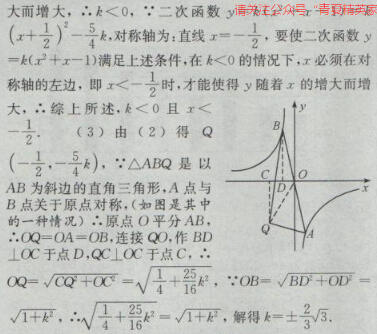 大而增大,∴k<0,∵二次函数 y
(x+1/2)²-5/4k,对称轴为:直线 x=-1/2,要使二次函数 y
=k(x²+x-1)满足上述条件,在 k<0 的情况下,x 必须在对
称轴的左边,即 x<-1/2时,才能使得 y 随着 x 的增大而增
大,∴综上所述,k<0 且 x<
-1/2. (3)由(2)得 Q
(-1/2,-5/4k),∵△ABQ 是以
AB 为斜边的直角三角形,A 点与
B 点关于原点对称,(如图是其中
的一种情况)∴原点 O 平分 AB,
∴OQ=OA=OB,连接 QO,作 BD
⊥OC 于点 D,QC⊥OC 于点 C,∴
OQ=√(CQ²+OC²)=√(1/4+25/16k²),∵OB=√(BD²+OD²)=
√(1+k²),∴√(1/4+25/16k²)=√(1+k²),解得 k=±2/3√3.
y
B
C
D
O
x
Q
A